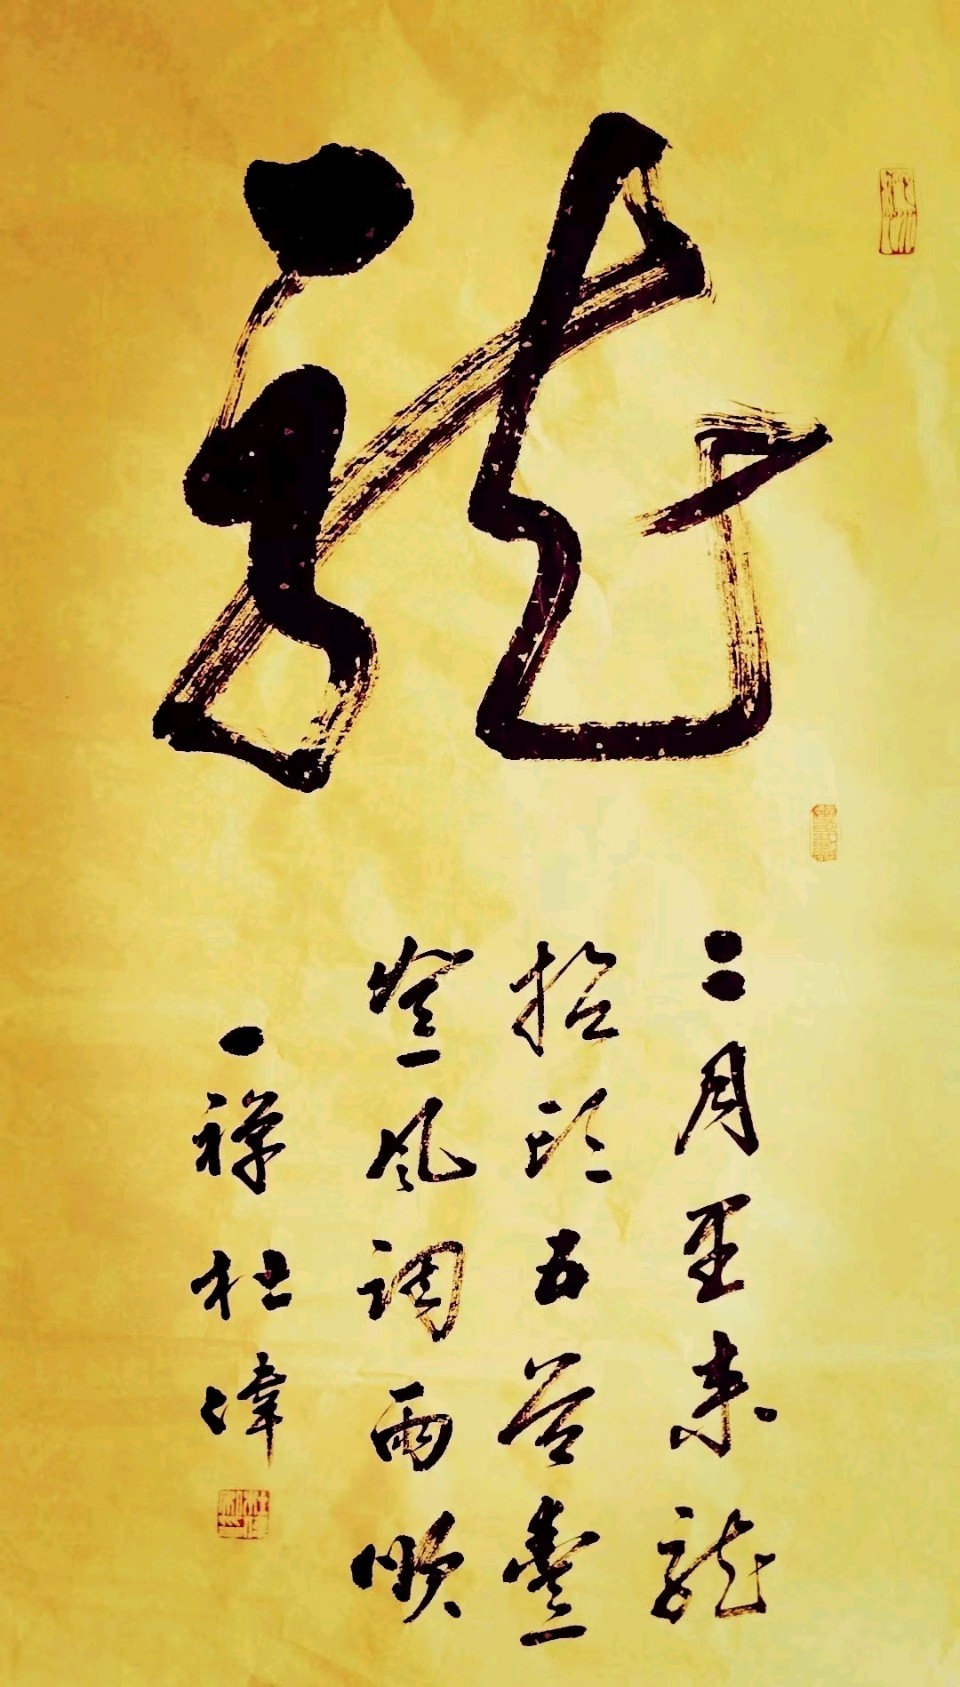 龍
二月里来龍
抬頭五谷豐
登風調雨順
一禪杜偉